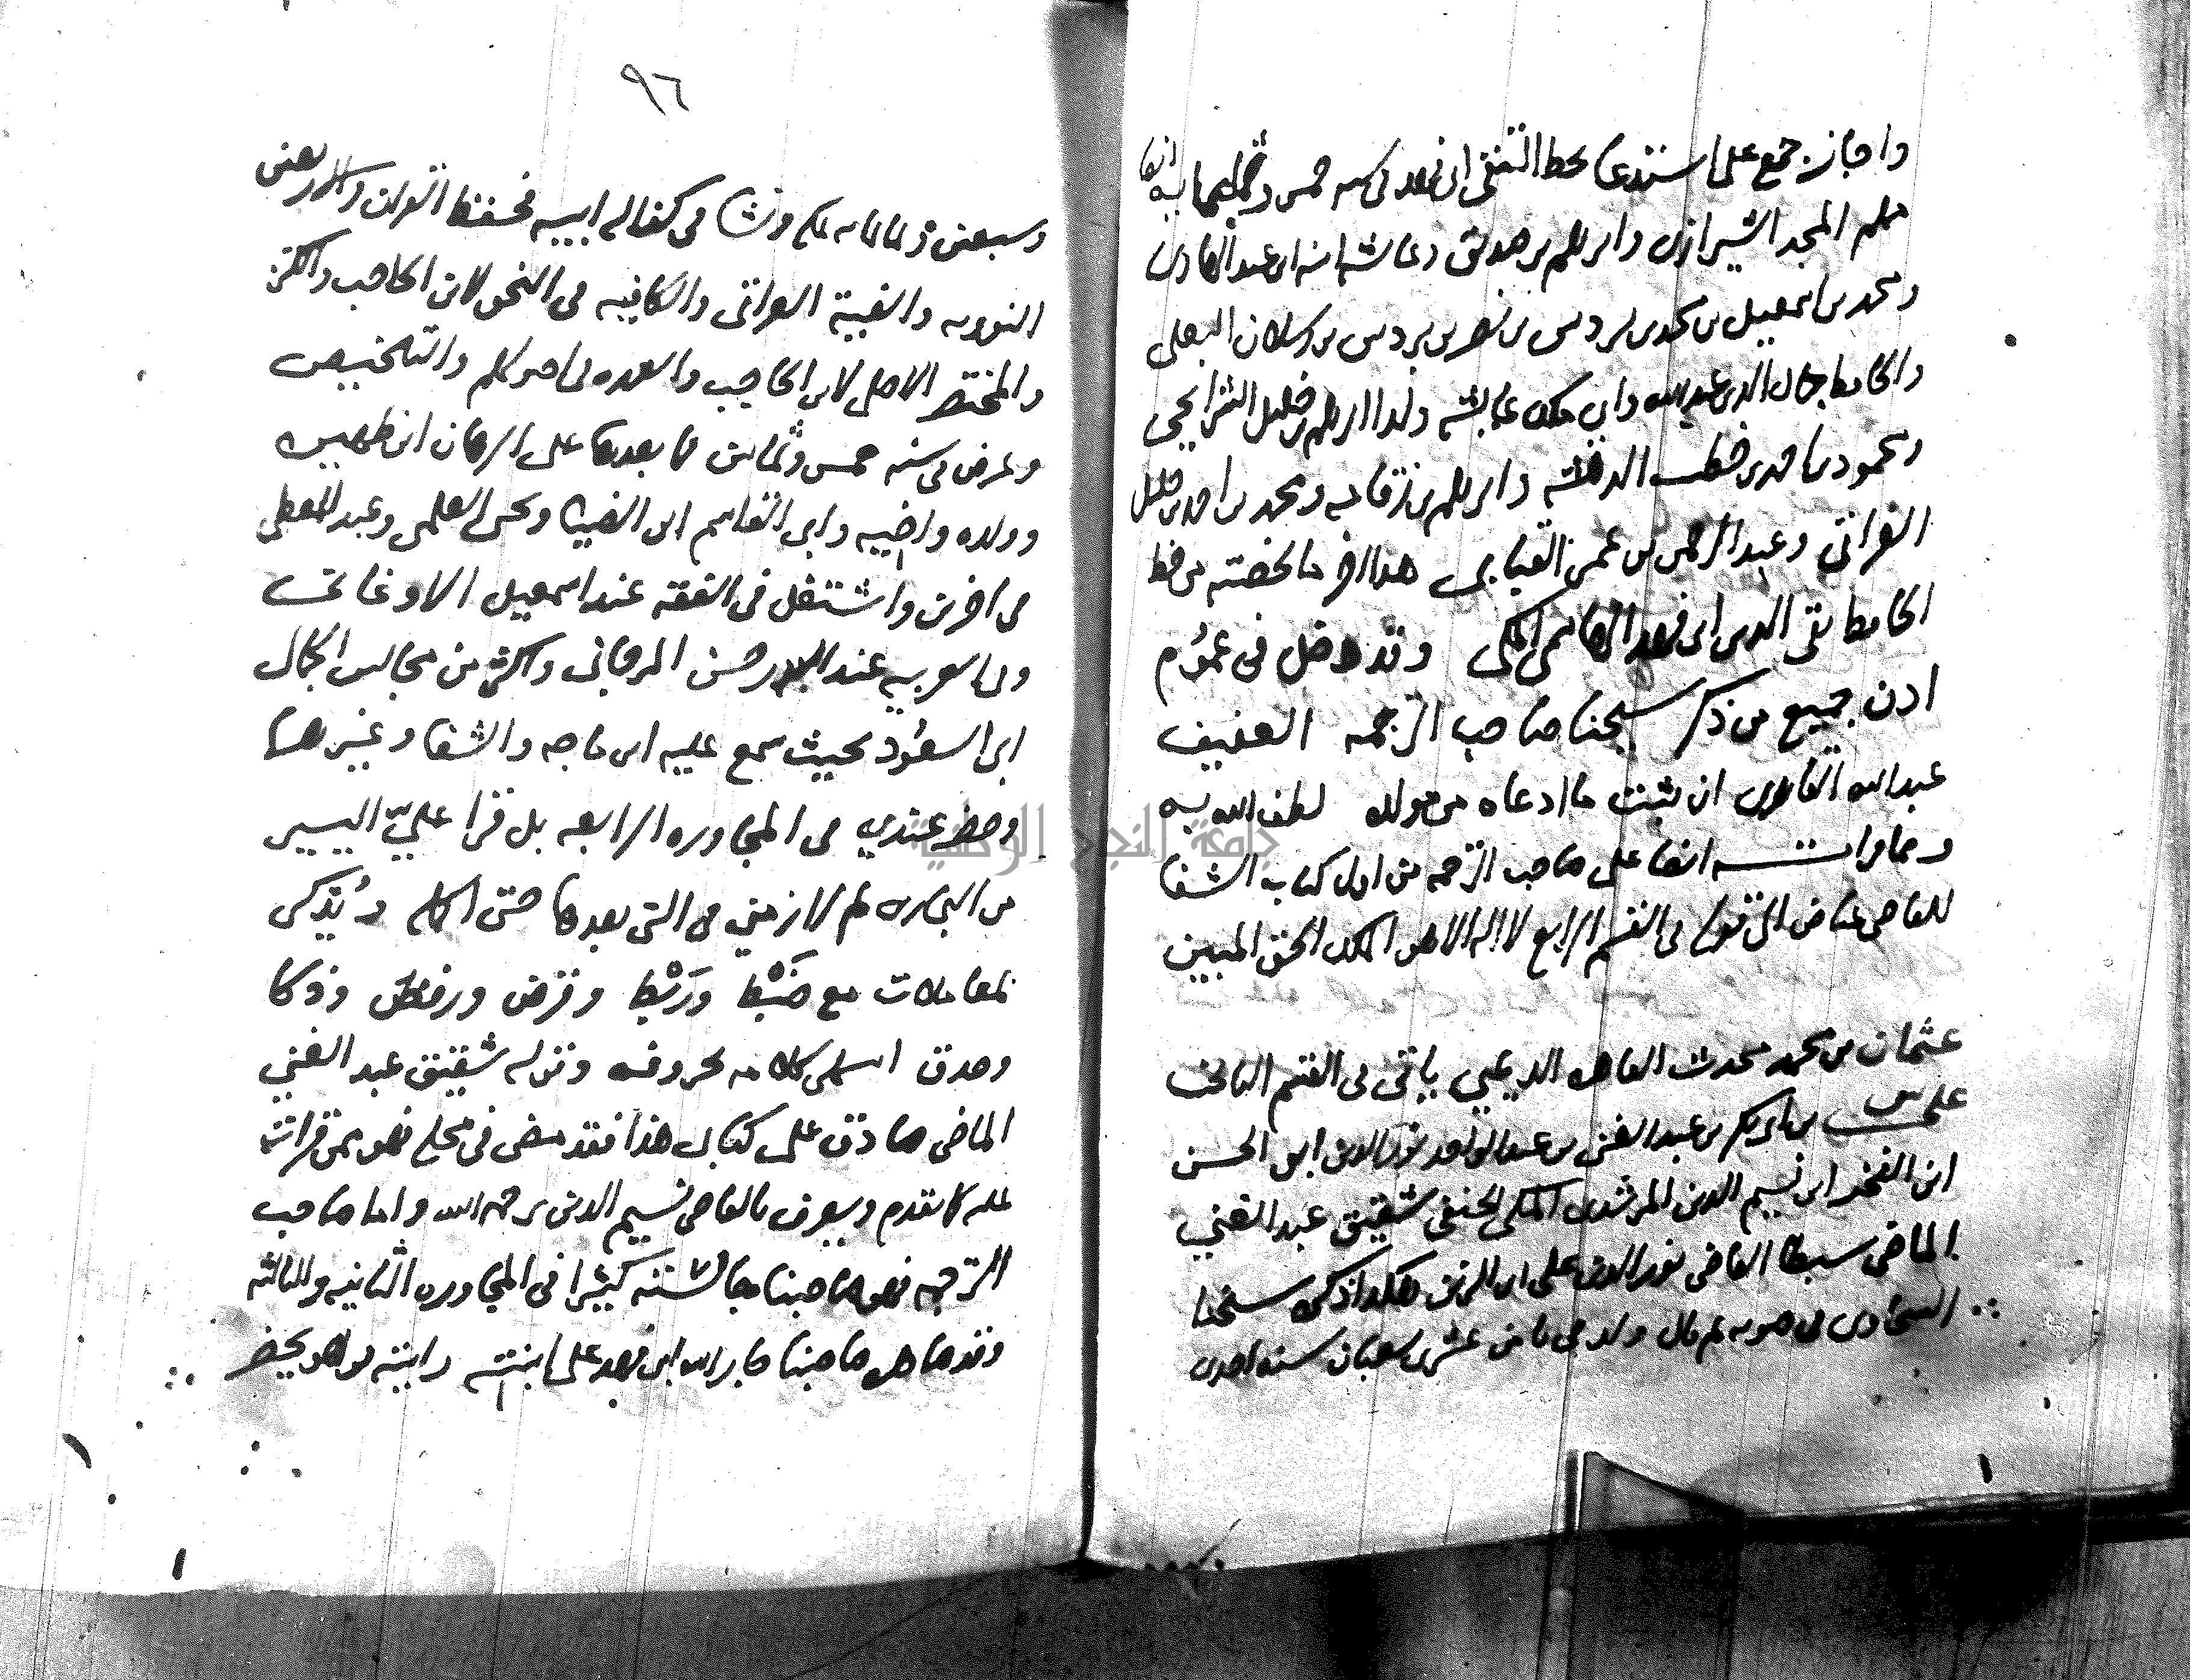 واجاز جمع على استدعا بخط التقي ابن فهد في سنه خمس وثمانمايه
منهم المجد الشيرازي وابرهيم بن صديق وعائشه ابنه ابن عبد الهادي
ومحمد بن اسمعيل بن محمد بن بردس بن نصر بن بردس بن رسلان البعلي
والحافظ جمال الدين عبد الله وابي عائشه ولدا ابرهيم بن خليل الشرايحي
ومحمود بن احمد بن خطيب الدهشه وابرهيم بن زقاعه ومحمد بن احمد بن خليل
الغراقي وعبد الرحمن بن عمر القبابي هذا اخر ما لخصته من خط
الحافظ تقي الدين ابن فهد الهاشمي المكي وقد دخل في عموم
اذن جميع من ذكر شيخنا صاحب الترجمه العفيف
عبد الله ان يثبت ما ادعاه من مولده لطف الله به
ومما قراته ايضا على صاحب الترجمه من اول كتاب الشفا
للقاضي عياض الى قوله في القسم الرابع لا اله الا هو الملك الحق المبين
عثمان بن محمد محدث القاهره الديمي ياتي في القسم الثالث
علي بن ابي بكر بن عبد الغني بن عبد الواحد نور الدين ابو الحسن
ابن الفخر ابن نسيم الدين المرشدي المكي الحنفي شقيق عبد الغني
الماضي سبط القاضي نور الدين علي ابن الزين هكذا ذكره شيخنا
السخاوي في ضويه ثم قال ولد في ثامن عشري شعبان سنه احدى
٩٦
وسبعين وثمانمايه بمكه ونشا في كفاله ابيه فحفظ القران والاربعين
النوويه والفية العراقي والكافيه في النحو لابن الحاجب والكنز
والمختصر الاصلي لابن الحاجب والعمده في اصولهم والتلخيص
وعرض في سنه خمس وثمانين فما بعدها على البرهان ابن ظهيره
وولده واخيه وابي القاسم ابن الضيا ويحيى العلمي وعبد المعطي
في اخرين واشتغل في الفقه عند اسمعيل الاوغاني
وفي العربيه عند البدر حسن المرجاني واكثر من مجالس الجمال
ابي السعود بحيث سمع عليه ابن ماجه والشفا وغيرهما
وحضر عندي في المجاوره الرابعه بل قرا عليّ اليسير
من البخاري ثم لازمني في التي بعدها حتى اكمله وتذكر
بمعاملات مع ضبط وربط وقرض ورفض وذكا
وصدق انتهى كلامه بحروفه وقوله شقيق عبد الغني
الماضي صادق على كتابي هذا فقد مضى في محله فهو ممن قرات
عليه كما تقدم ويعرف بالقاضي نسيم الدين رحمه الله واما صاحب
الترجمه فهو صاحبنا جالسته كثيرا في المجاوره الثانيه والثالثه
وقد صاهر صاحبنا جار الله ابن فهد على ابنته وابنته يحضر